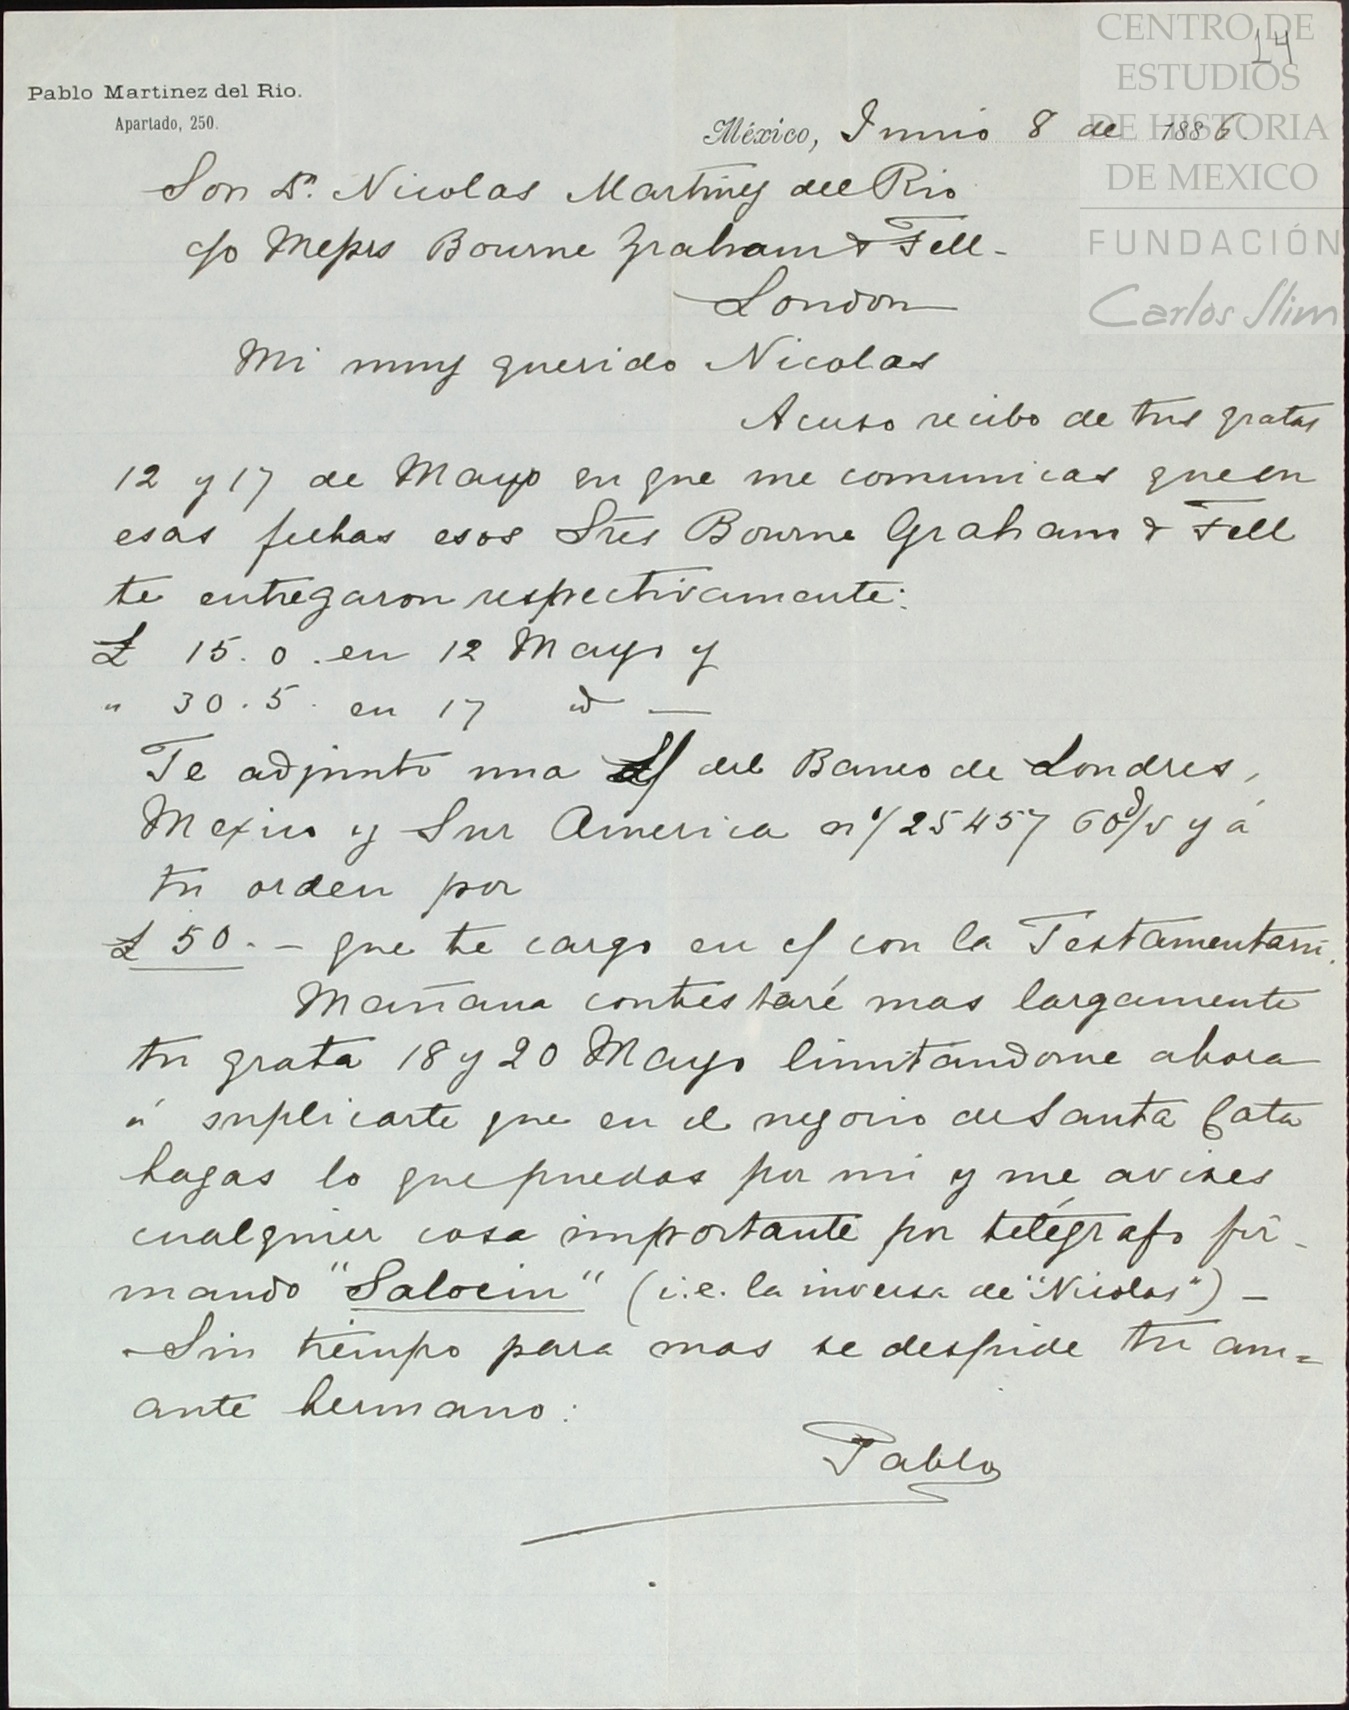 CENTRO DE
ESTUDIOS
DE HISTORIA
DE MEXICO
FUNDACIÓN
Carlos Slim
14
Pablo Martinez del Rio.
Apartado, 250.
México, Junio 8 de 1886.
Sor Dn. Nicolas Martinez del Rio
c/o Messrs Bourne Graham & Fell -
London
Mi muy querido Nicolas
Acuso recibo de tus gratas
12 y 17 de Mayo en que me comunicas que en
esas fechas esos Sres Bourne Graham & Fell
te entregaron respectivamente:
£ 15. 0. en 12 Mayo y
" 30. 5. en 17 id —
Te adjunto una del Banco de Londres,
Mexico y Sur America no/ 25457 60d/v y á
tu orden por
£ 50. - que te cargo en c/ con la Testamentari.
Mañana contestaré mas largamente
tu grata 18 y 20 Mayo limitandome ahora
á suplicarte que en el negocio de Santa Cata
hagas lo que puedas por mi y me avises
cualquier cosa importante por telégrafo fir-
mando "Salocin" (i.e. la inversa de "Nicolas") -
Sin tiempo para mas se despide tu am=
ante hermano:
Pablo